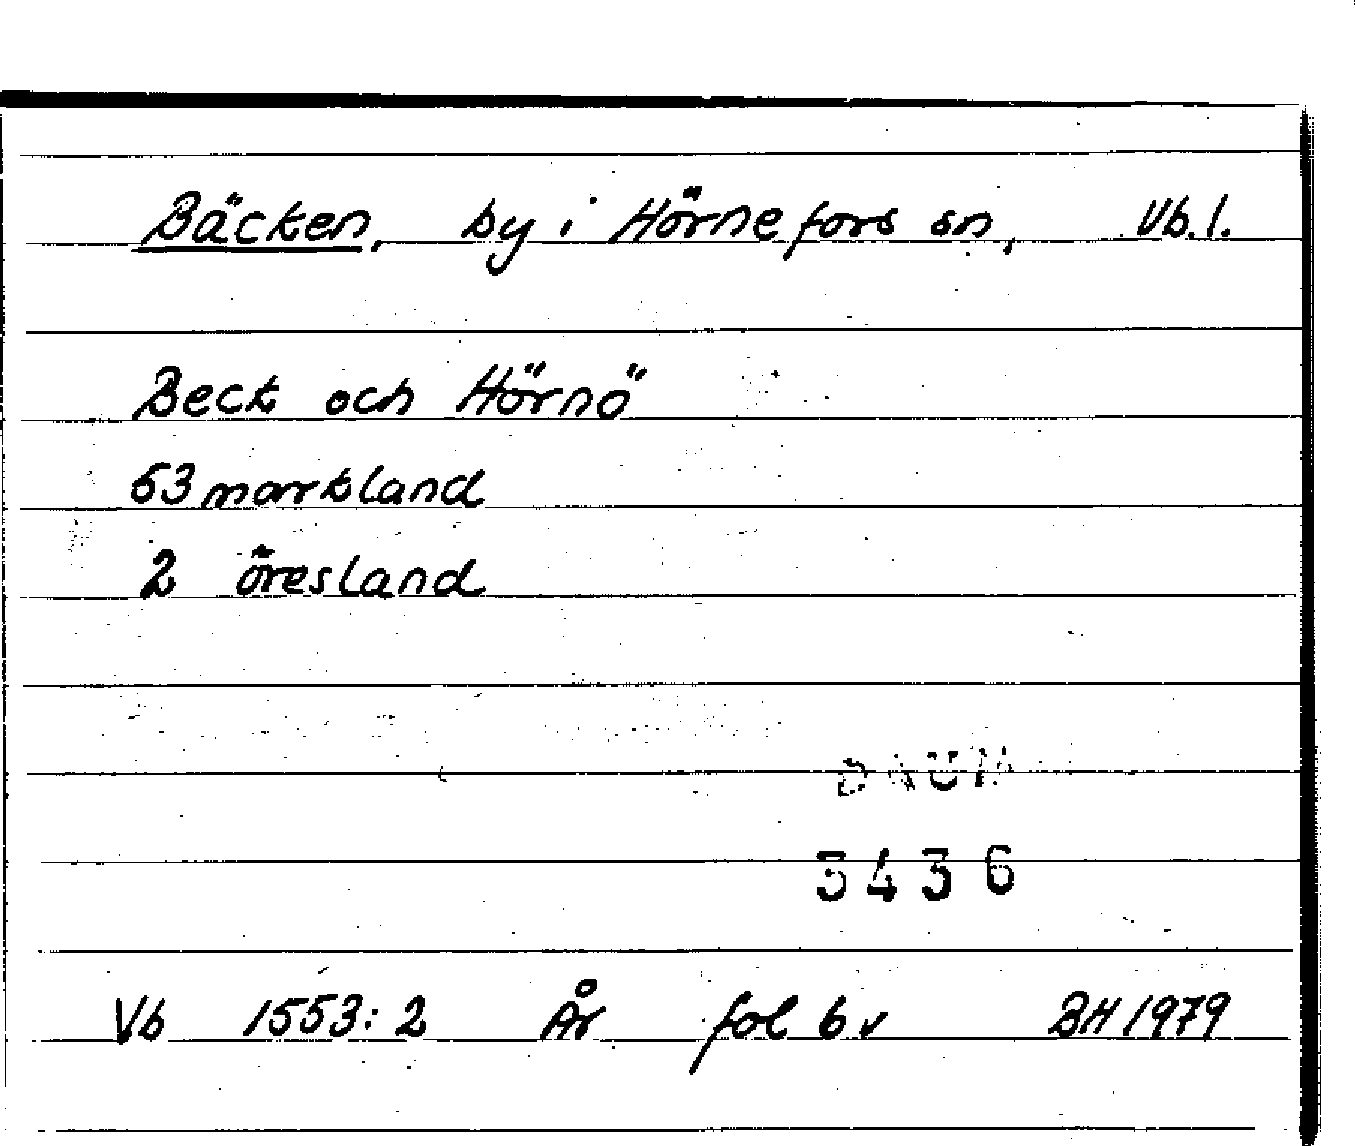 Bäcken, by i Hörnefors sn, Vb.l.
Beck och Hörnö
63 markland
2 öresland
DAUM
3436
Vb 1553:2 År fol 6v BH 1979